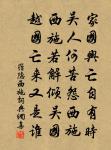 家國興亡自有時
吳人何苦怨西施
西施若解傾吳國
越國亡來又是誰
羅隱西施詩典網書